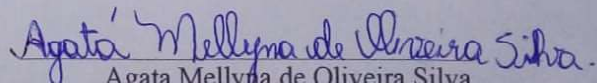 Agatá Mellyna de Oliveira Silva.
Agata Mellyna de Oliveira Silva